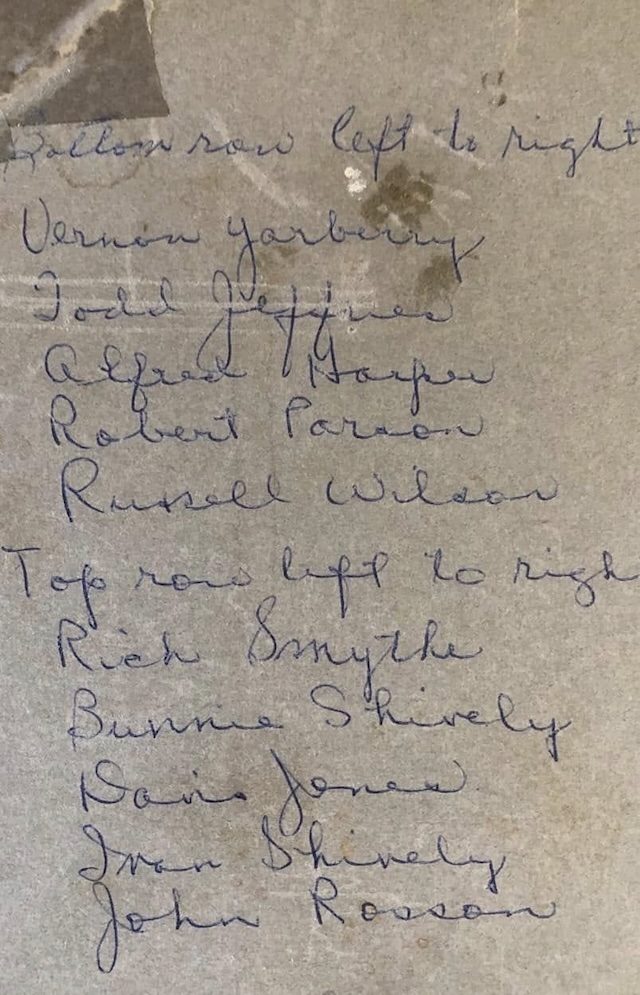 Bottom row left to right
Vernon Yarberry
Todd Jeffries
Alfred Harper
Robert Parson
Russell Wilson
Top row left to righ
Rich Smythe
Bunnie Shively
Jones
Ivan Shively
John Rosson